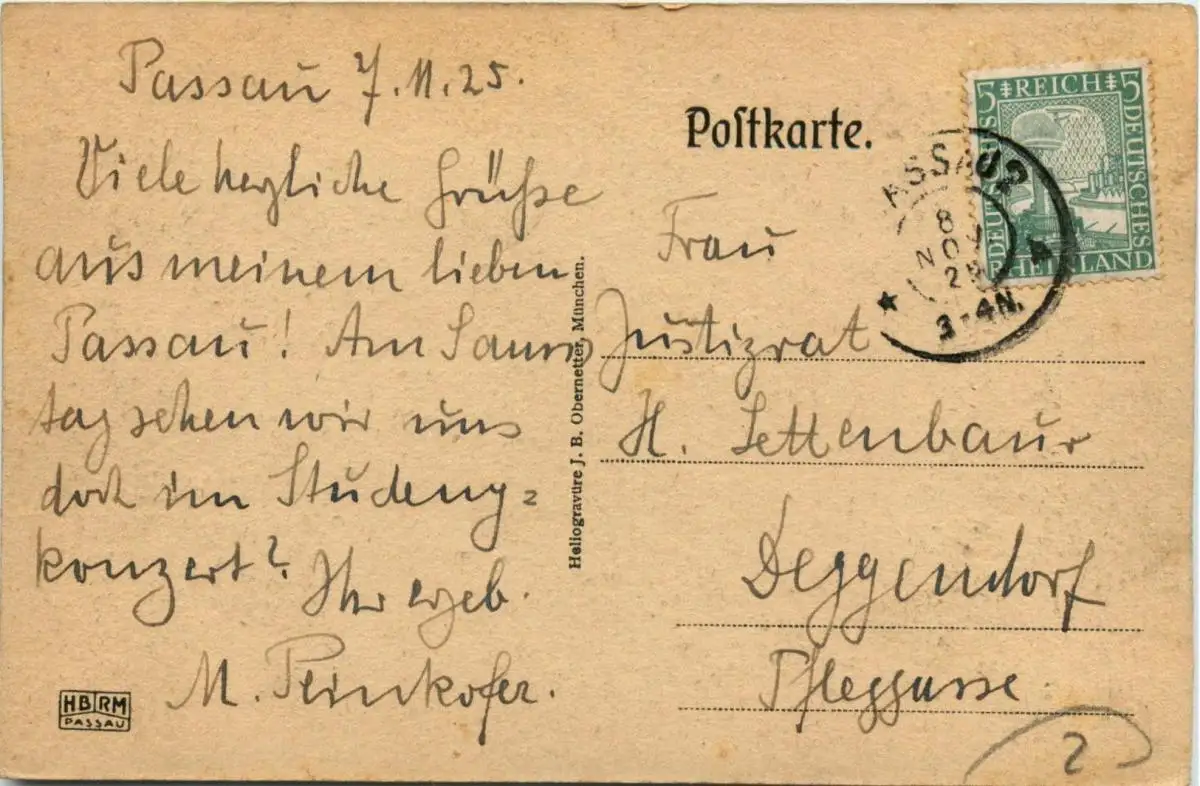 Passau 7.11.25.
Viele herzliche Grüße
aus meinem lieben
Passau! Am Sams
tag sehen wir uns
doch im
konzert? Ihr ergeb.
M. Peinkofer.
HB RM
PASSAU
Heliogravüre J. B. Obernetter, München.
Poſtkarte.
Frau
Justizrat
H. Lettenbaur
Deggendorf
Pfleggasse
2
5 REICH 5
DEUTSCHES
DEUTSCHES
RHEINLAND
PASSAU 2
8
NOV
25
3-4N.